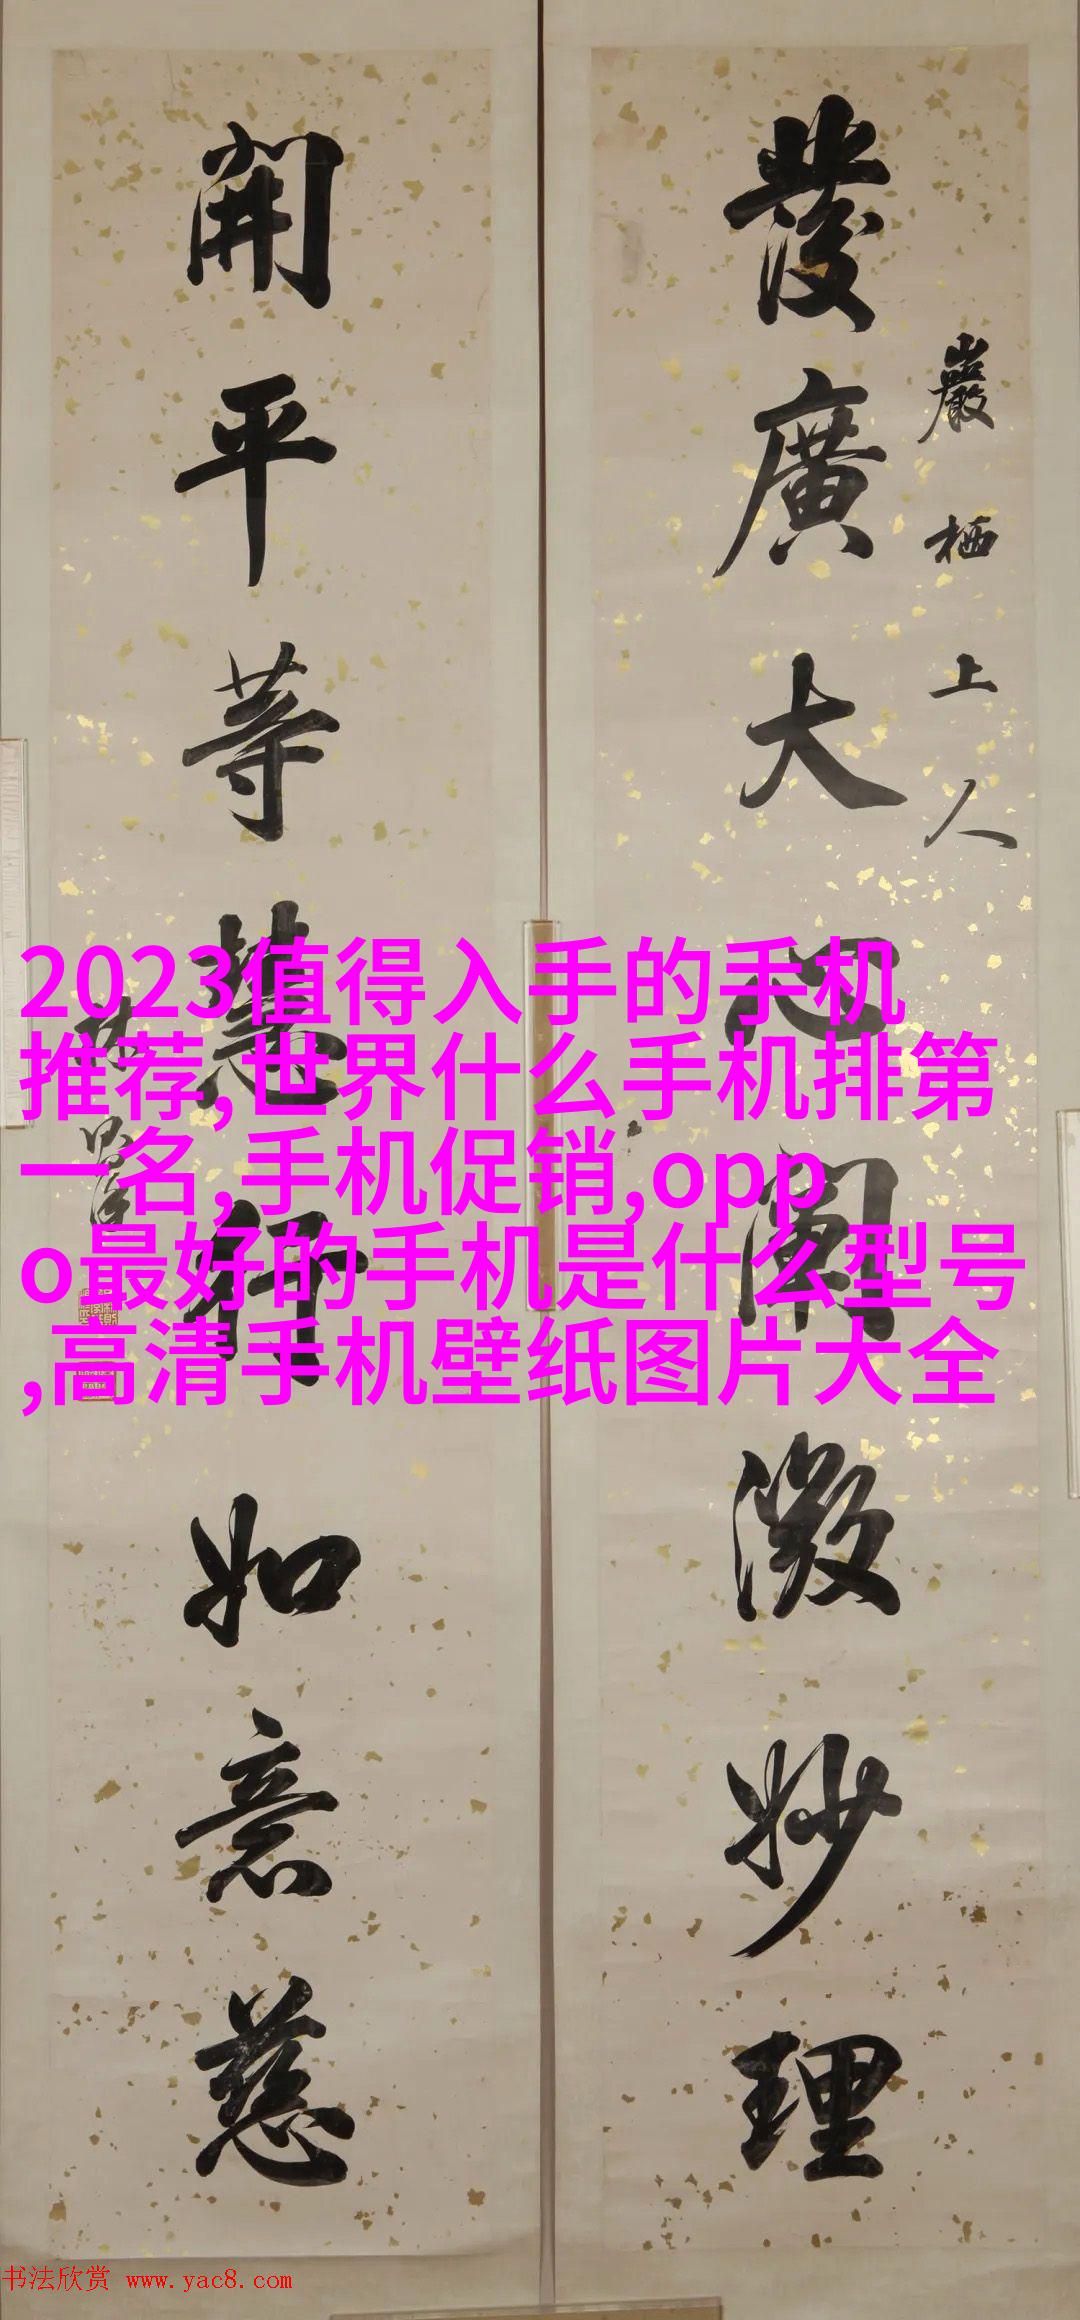 發廣大心闡微妙理
巖栖上人
開平等慧行如意慈
2023值得入手的手机
推荐,世界什么手机排第
一名,手机促销,opp
o最好的手机是什么型号
,高清手机壁纸图片大全
书法欣赏 www.yac8.com